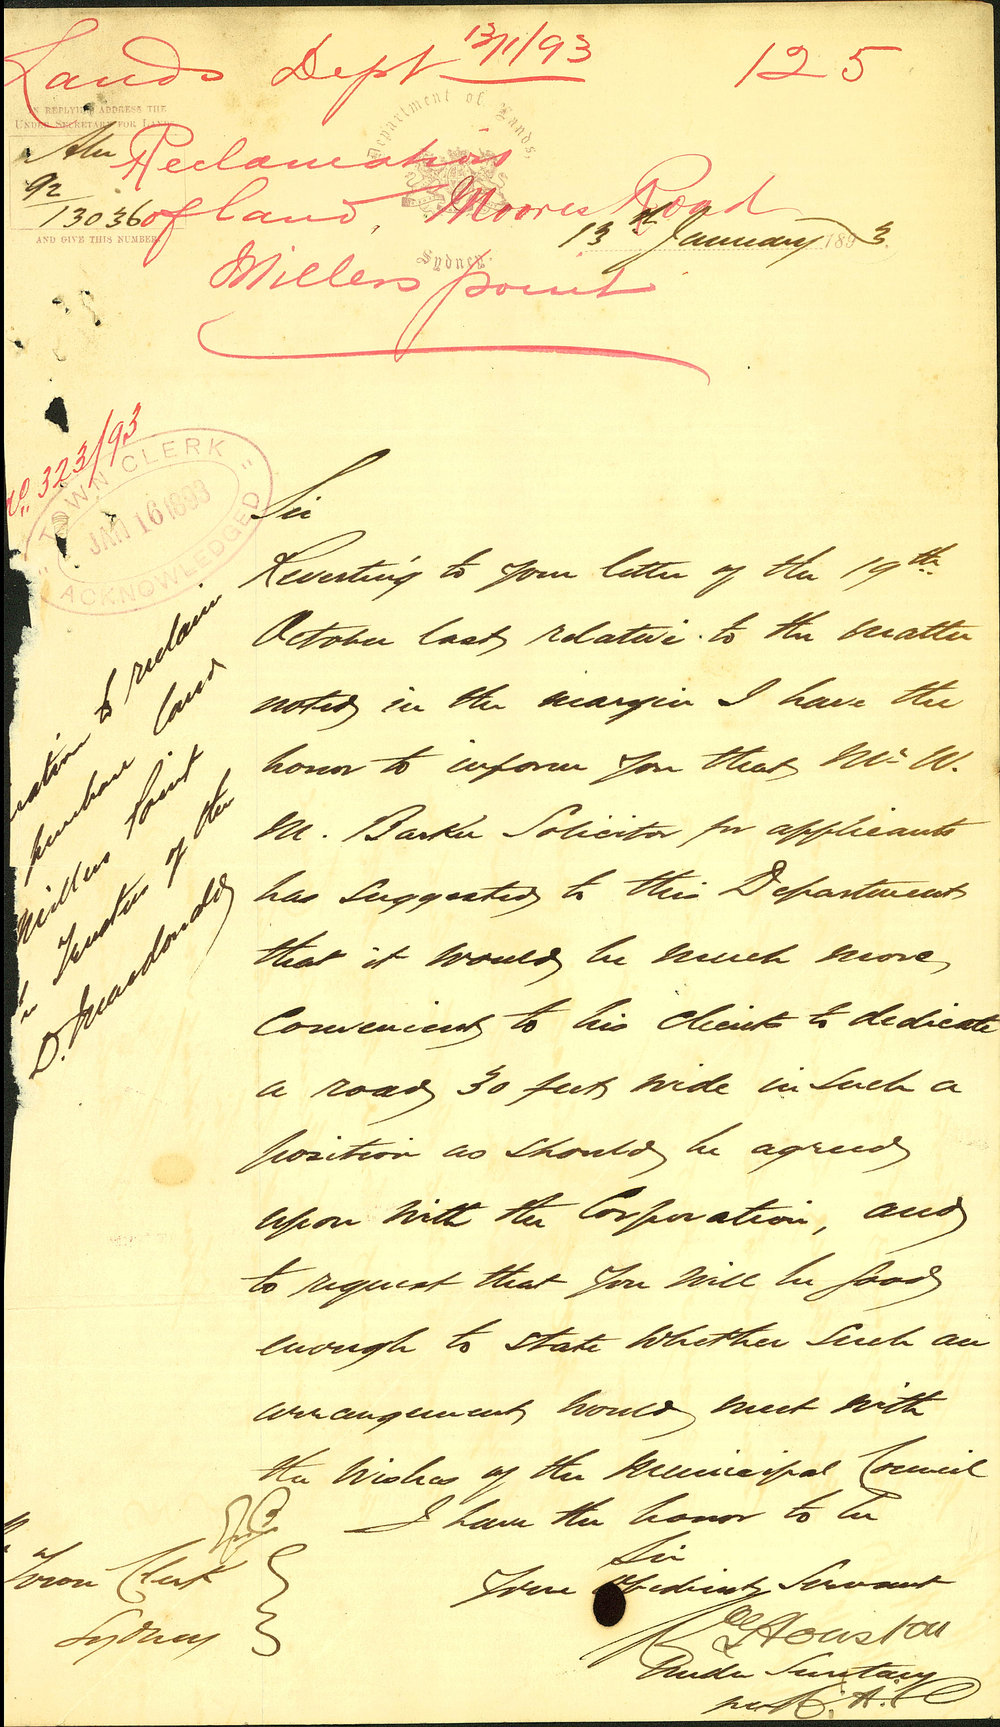 Lands Dept 13/1/93
125
IN REPLYING ADDRESS THE
UNDER SECRETARY FOR LANDS
Department of Lands,
Reclamation
Aln
92
13036
of land, Moores Road
AND GIVE THIS NUMBER
Sydney.
13th January 1893.
Millers point
no 323/93
TOWN CLERK
JAN 16 1893
ACKNOWLEDGED
to reclaim
purchase land
Millers Point
Trustees of the
D. Macdonald
Sir
Reverting to your letter of the 19th
October last, relative to the matter
noted in the margin I have the
honor to inform you that Mr W.
M. Barker Solicitor for applicants
has suggested to this Department
that it would be much more
convenient to his clients to dedicate
a road 30 feet wide in such a
position as should be agreed
upon with the Corporation, and
to request that you will be good
enough to state whether such an
arrangement would meet with
the wishes of the Municipal Council
I have the honor to be
Sir
Your obedient Servant
Houston
Under Secretary
Town Clerk
Sydney